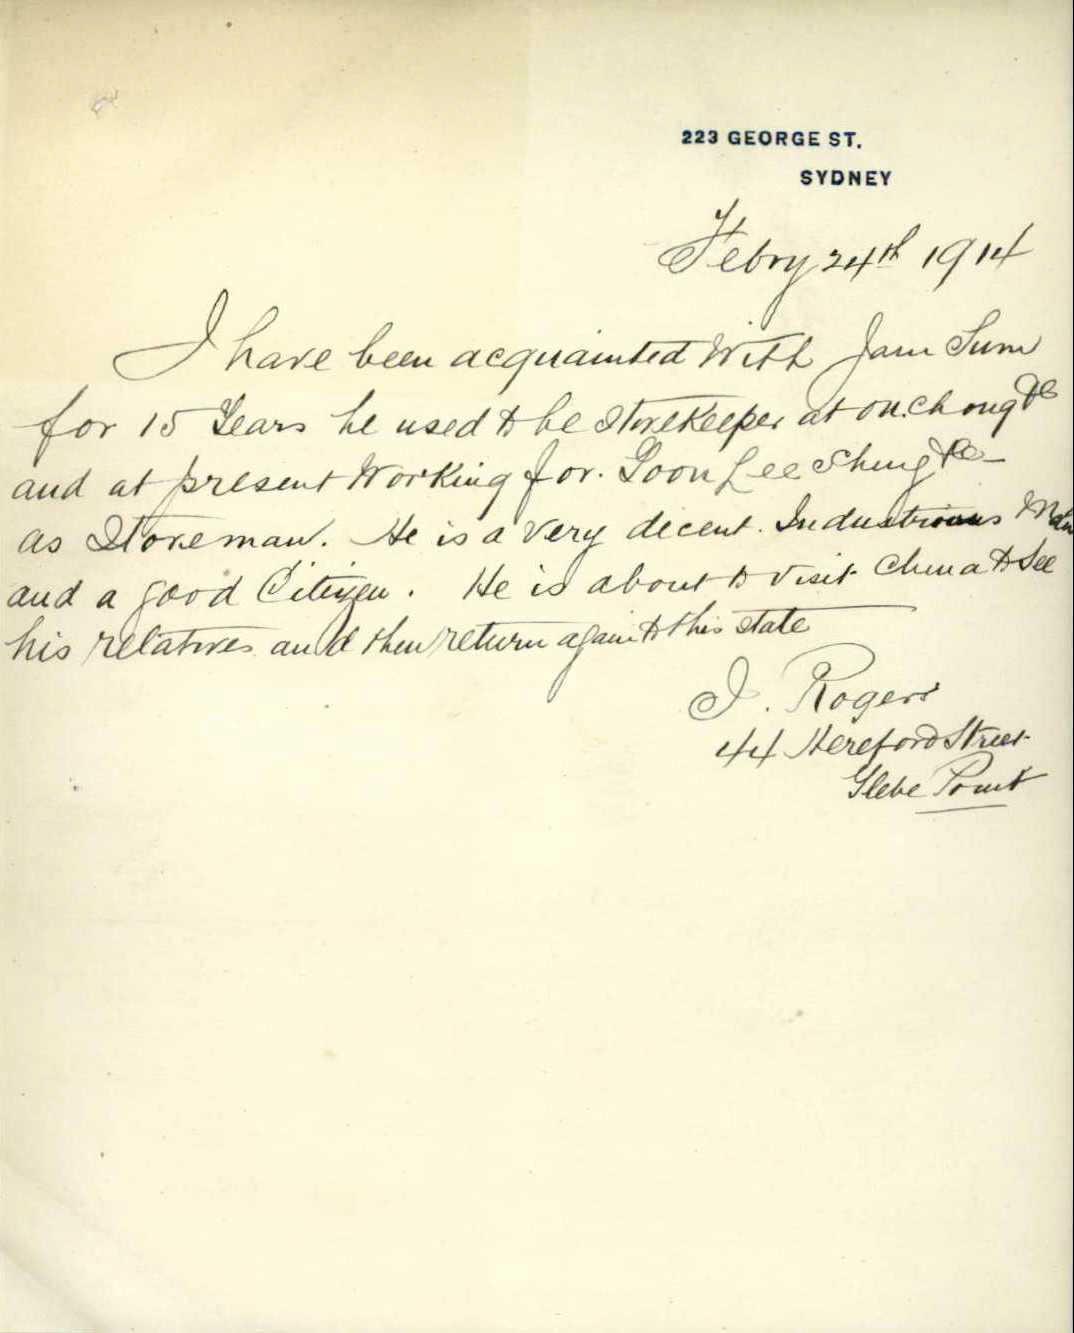 223 GEORGE ST.
SYDNEY
Febry 24th 1914
I have been acquainted With Jam Sum
for 15 Years he used to be Storekeeper at on Chong & Co
and at present Working for. Goon Lee Shing & Co
as Storeman. He is a very decent. Industrious Man
and a good Citizen. He is about to visit China to See
his relatives and then return again to this state
J. Rogers
44 Hereford Street
Glebe Point